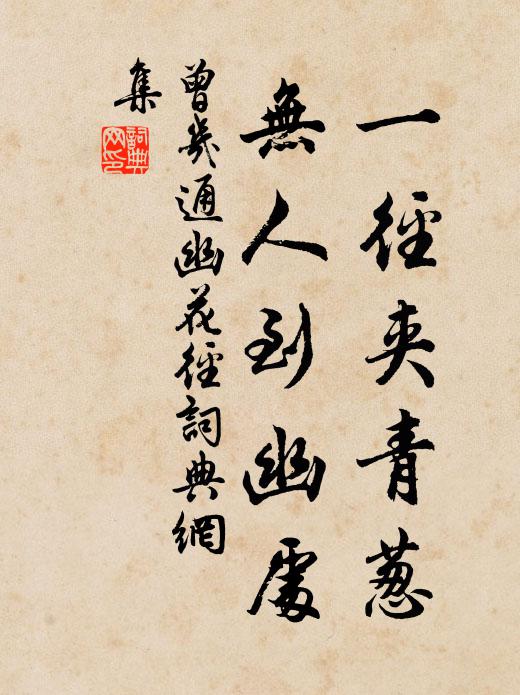 一徑夾青蔥
無人到幽處
曾幾通幽花徑詞典網
集
詞典
网印